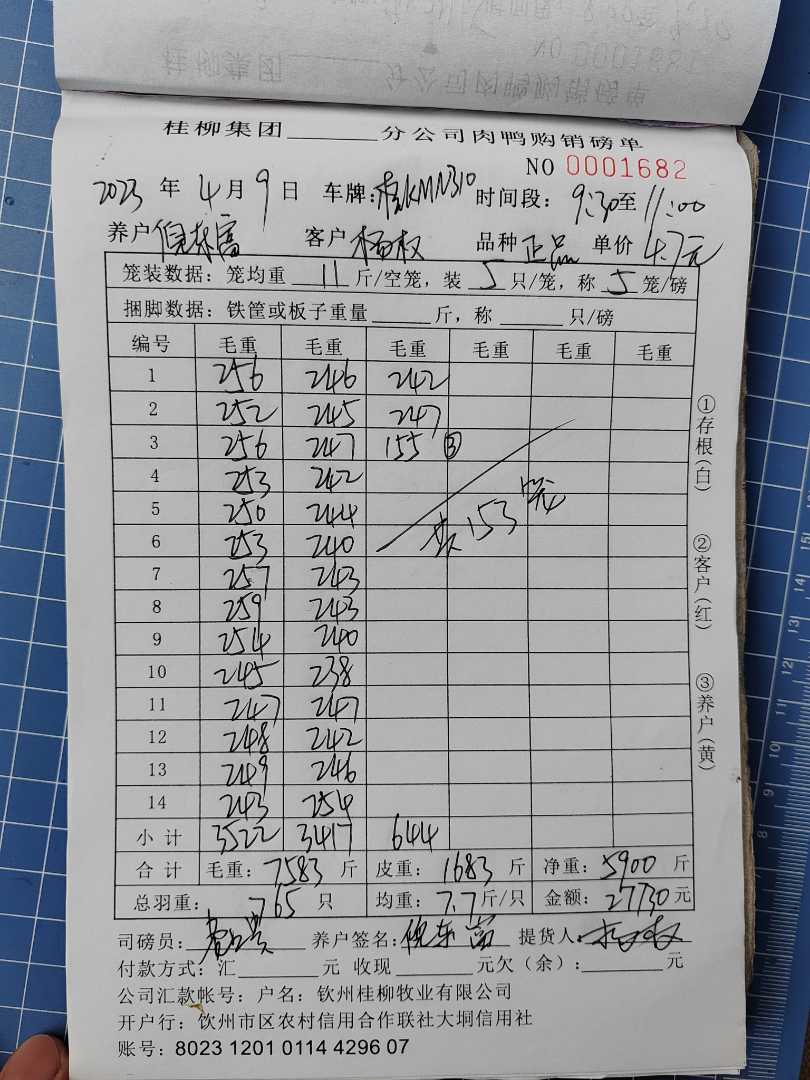 桂柳集团______分公司肉鸭购销磅单
NO 0001682
2023 年 4 月 9 日 车牌：桂KMN310 时间段：9:30至11:00
养户 倪东富 客户 杨权 品种 正品 单价 4.7元
笼装数据：笼均重 11 斤/空笼，装 5 只/笼，称 5 笼/磅
捆脚数据：铁筐或板子重量______斤，称______只/磅
编号 毛重 毛重 毛重 毛重 毛重 毛重
1 256 246 242
2 252 245 247
3 256 247 155 ③
4 253 242
5 250 244
6 253 240 共153笼
7 257 243
8 259 243
9 254 240
10 245 238
11 247 247
12 248 242
13 249 246
14 243 254
小计 3522 3417 644
合计 毛重：7583 斤 皮重：1683 斤 净重：5900 斤
总羽重：765 只 均重：7.7斤/只 金额：27730元
司磅员： 养户签名：倪东富 提货人：杨权
付款方式：汇______元 收现______元欠（余）：______元
公司汇款帐号：户名：钦州桂柳牧业有限公司
开户行：钦州市区农村信用合作联社大垌信用社
账号：8023 1201 0114 4296 07
①存根(白)
②客户(红)
③养户(黄)